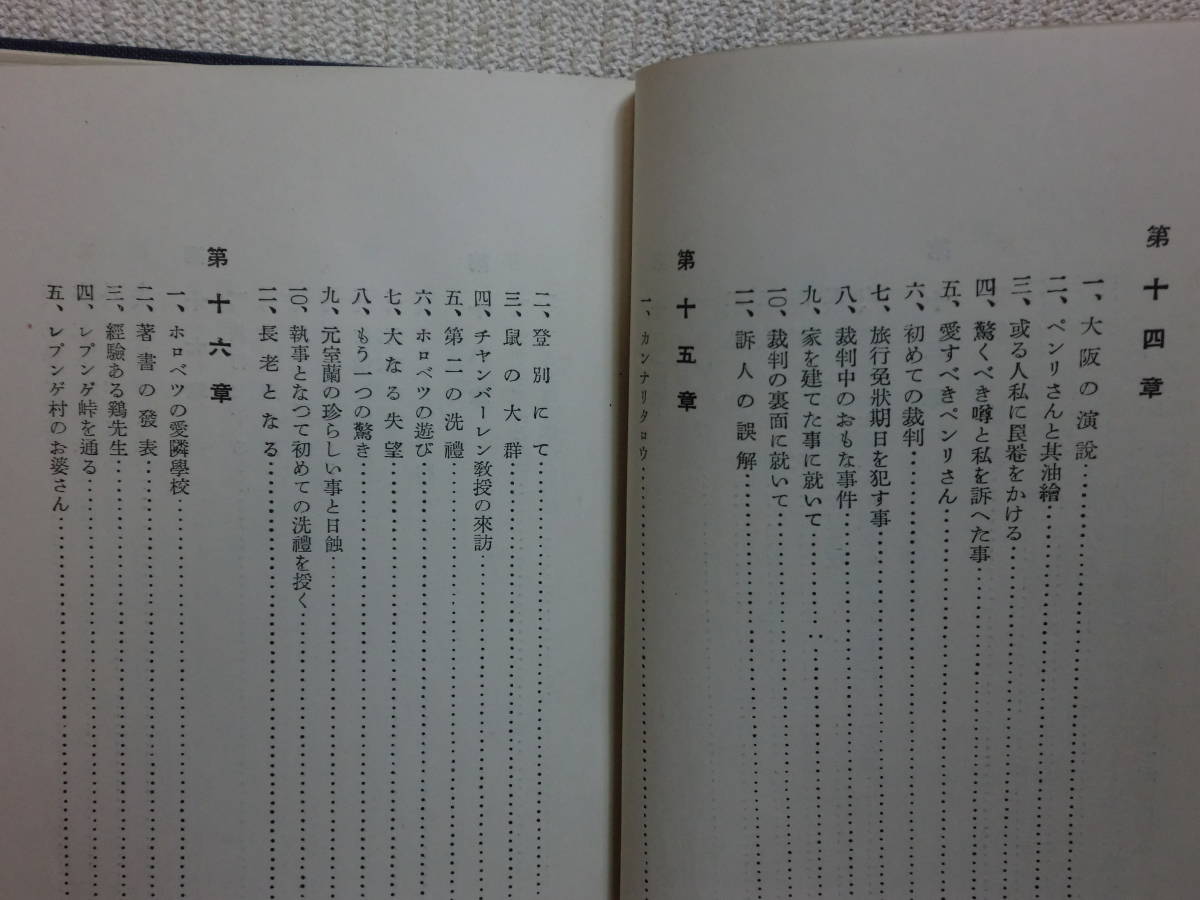 第十四章
一、大阪の演説
二、ペンリさんと其油繪
三、或る人私に罠をかける
四、驚くべき噂と私を訴へた事
五、愛すべきペンリさん
六、初めての裁判
七、旅行免狀期日を犯す事
八、裁判中のおもな事件
九、家を建てた事に就いて
一〇、裁判の裏面に就いて
一一、訴人の誤解
第十五章
一、カンナリタロウ
二、登別にて
三、鼠の大群
四、チャンバーレン敎授の來訪
五、第二の洗禮
六、ホロベツの遊び
七、大なる失望
八、もう一つの驚き
九、元室蘭の珍らしい事と日蝕
一〇、執事となつて初めての洗禮を授く
一一、長老となる
第十六章
一、ホロベツの愛隣學校
二、著書の發表
三、經驗ある鶏先生
四、レブンゲ峠を通る
五、レブンゲ村のお婆さん